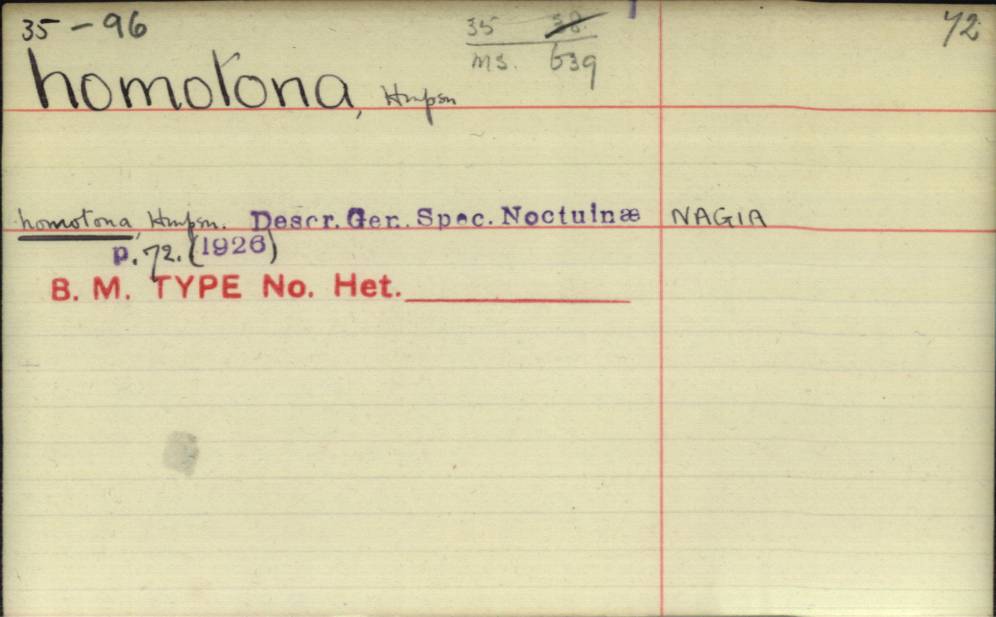 35-96 35 38. 72
ms. 639
homotona, Hmpsn
homotona, Hmpsn. Descr. Gen. Spec. Noctuinæ NAGIA
p. 72. (1926)
B. M. TYPE No. Het.